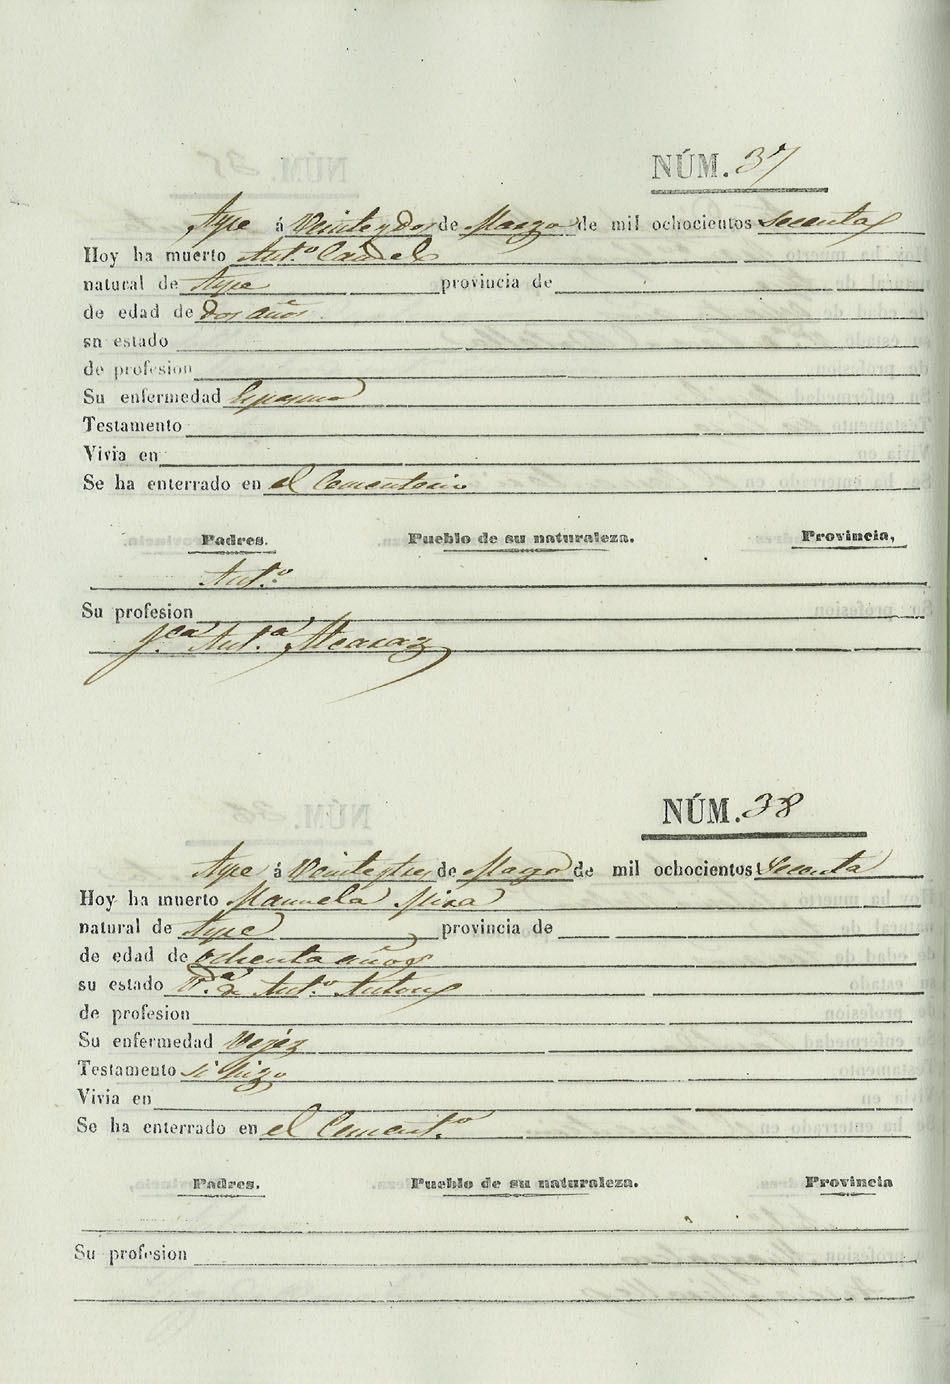 NÚM. 37
Aspe á Veinte y dos de Marzo de mil ochocientos Secenta
Hoy ha muerto Ant.o Candel
natural de Aspe provincia de
de edad de dos años
sn estado
de profesion
Su enfermedad
Testamento
Vivia en
Se ha enterrado en el Cementerio
Padres. Pueblo de su naturaleza. Provincia,
Ant.o
Su profesion
Ant.a Alcaraz
NÚM. 38
Aspe á Veinte y tres de Marzo de mil ochocientos Secenta
Hoy ha muerto Manuela Mira
natural de Aspe provincia de
de edad de ochenta años
su estado V.da de Ant.o Anton
de profesion
Su enfermedad Vejéz
Testamento si hizo
Vivia en
Se ha enterrado en el Cement.o
Padres. Pueblo de su naturaleza. Provincia
Su profesion